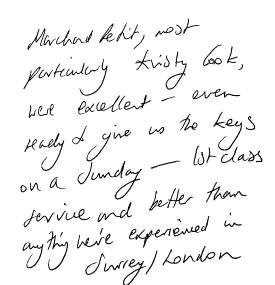 Marchand Petit, most
particularly Kristy Cook,
were excellent – even
ready to give us the keys
on a Sunday – 1st class
service and better than
anything we've experienced in
Surrey/London